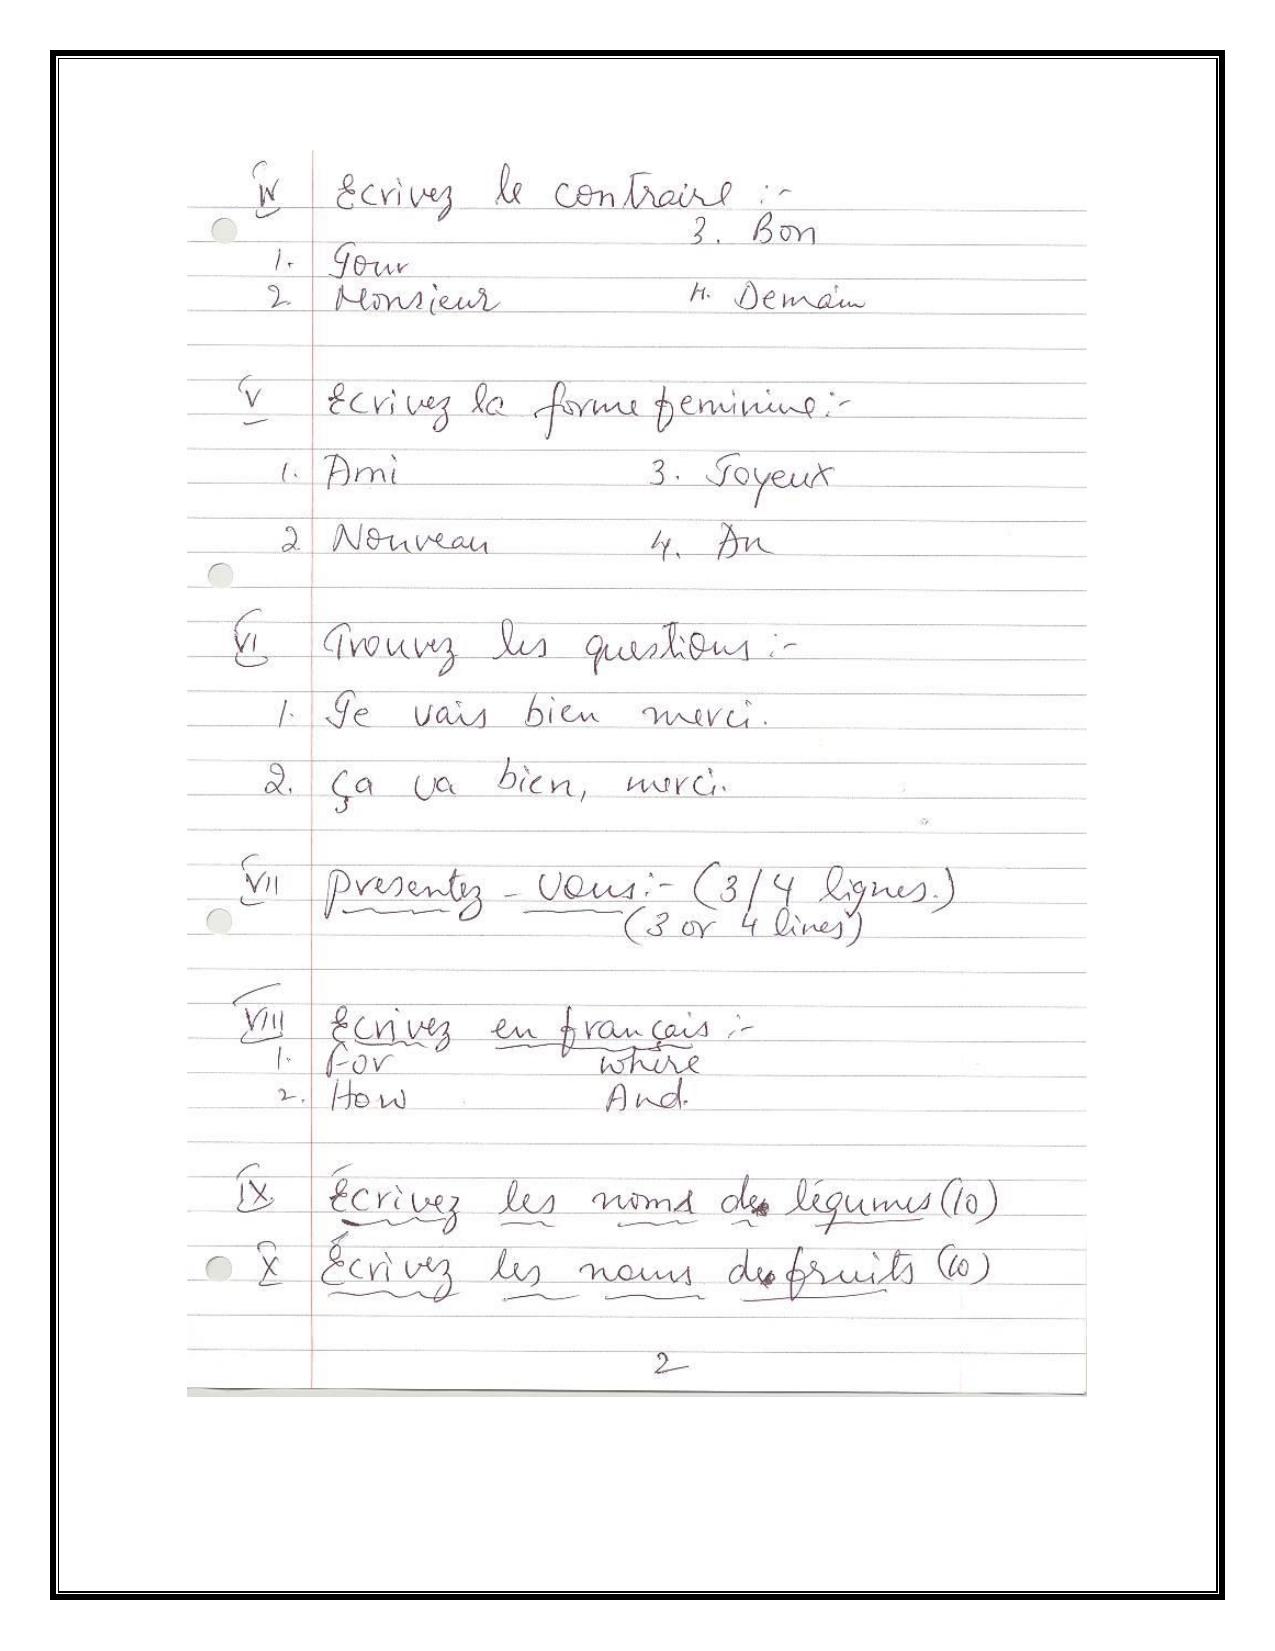 IV Ecrivez le contraire :-
3. Bon
1. Jour
2. Monsieur 4. Demain
V Ecrivez la forme feminine:-
1. Ami 3. Joyeux
2 Nouveau 4. An
VI Trouvez les questions :-
1. Je vais bien merci.
2. Ça va bien, merci.
VII Presentez - vous:- (3/4 lignes.)
(3 or 4 lines)
VIII Ecrivez en français :-
1. For where
2. How And.
IX Écrivez les noms de légumes (10)
X Écrivez les noms de fruits (10)
2